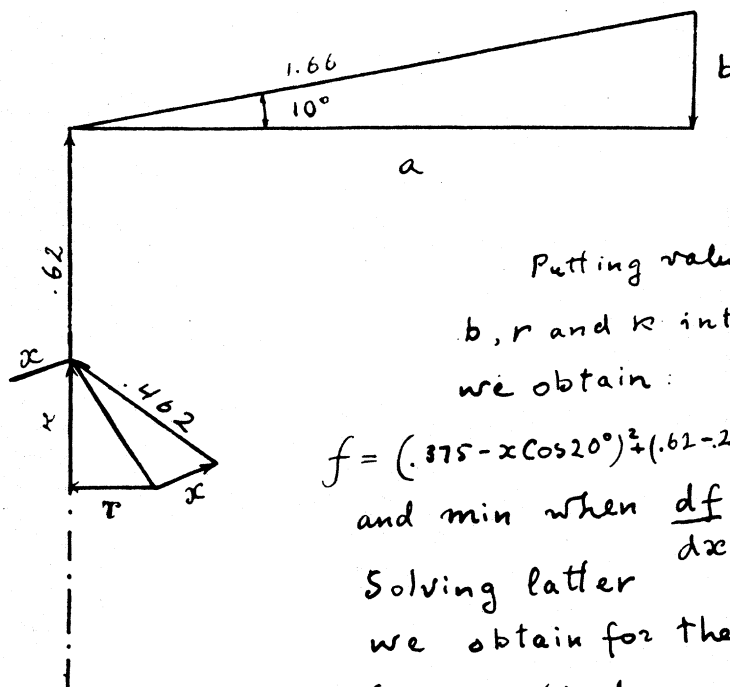 1.66
b
10°
a
.62
Putting valu
b, r and κ int
x
we obtain:
.462
r
f = (.375-xCos20°)²+(.62-.2
τ
x
and min when df/dx
Solving latter
we obtain for the